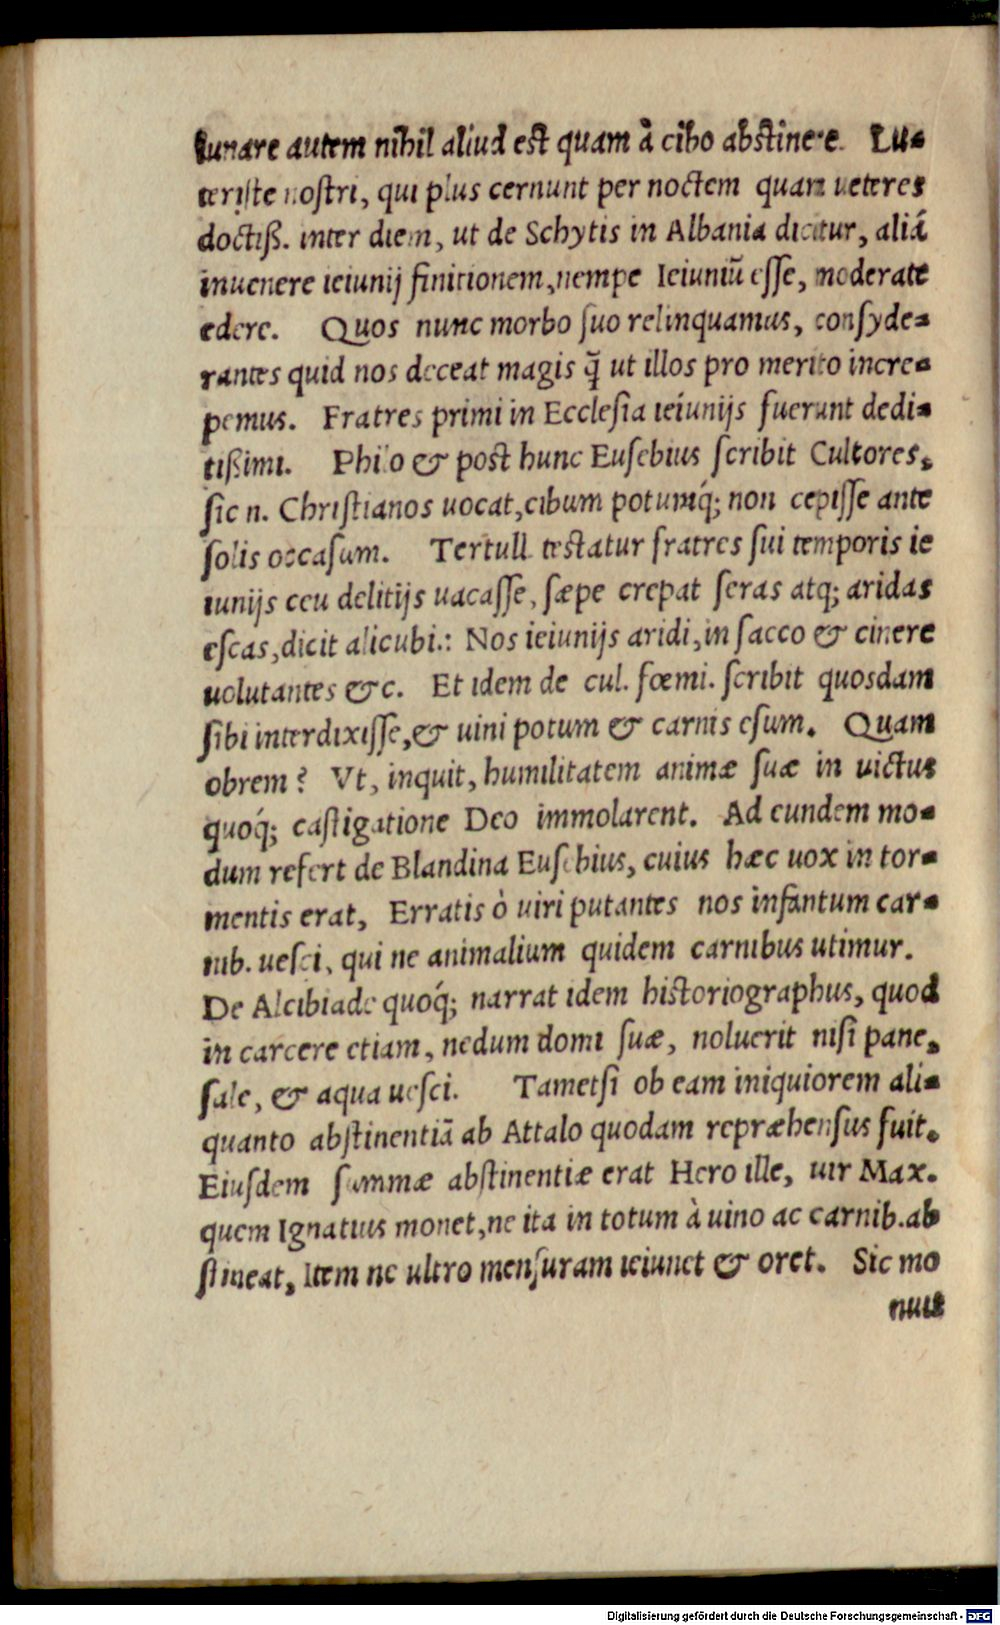 iunare autem nihil aliud est quam à cibo abstinere. Lu-
teriste nostri, qui plus cernunt per noctem quam ueteres
doctiß. inter diem, ut de Schytis in Albania dicitur, aliā
inuenere ieiunij finitionem, nempe Ieiuniū esse, moderate
edere. Quos nunc morbo suo relinquamus, consyde-
rantes quid nos deceat magis q̄ ut illos pro merito incre-
pemus. Fratres primi in Ecclesia ieiunijs fuerunt dedi-
tißimi. Philo & post hunc Eusebius scribit Cultores,
sic n. Christianos uocat, cibum potumq́; non cepisse ante
solis occasum. Tertull. testatur fratres sui temporis ie
iunijs ceu delitijs uacasse, sæpe crepat seras atq; aridas
escas, dicit alicubi.: Nos ieiunijs aridi, in sacco & cinere
uolutantes &c. Et idem de cul. fœmi. scribit quosdam
sibi interdixisse, & uini potum & carnis esum. Quam
obrem? Vt, inquit, humilitatem animæ suæ in uictus
quoq́; castigatione Deo immolarent. Ad eundem mo-
dum refert de Blandina Eusebius, cuius hæc uox in tor-
mentis erat, Erratis ò uiri putantes nos infantum car-
nib. uesci, qui ne animalium quidem carnibus utimur.
De Alcibiade quoq́; narrat idem historiographus, quod
in carcere etiam, nedum domi suæ, noluerit nisi pane,
sale, & aqua uesci. Tametsi ob eam iniquiorem ali-
quanto abstinentiā ab Attalo quodam repræhensus fuit.
Eiusdem summæ abstinentiæ erat Hero ille, uir Max.
quem Ignatius monet, ne ita in totum à uino ac carnib. ab
stineat, Item ne ultro mensuram ieiunet & oret. Sic mo
nuit
Digitalisierung gefördert durch die Deutsche Forschungsgemeinschaft - DFG